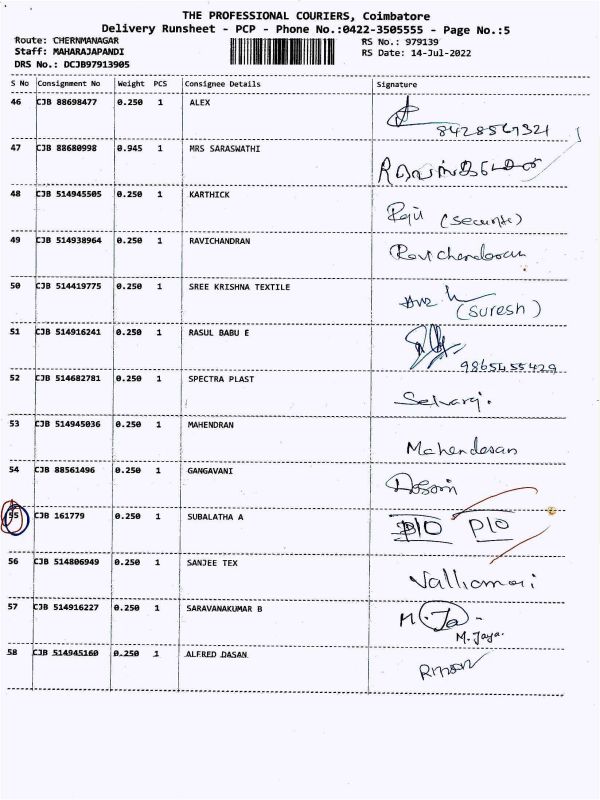 THE PROFESSIONAL COURIERS, Coimbatore
Delivery Runsheet - PCP - Phone No.:0422-3505555 - Page No.:5
Route: CHERNMANAGAR RS No.: 979139
Staff: MAHARAJAPANDI RS Date: 14-Jul-2022
DRS No.: DCJB97913905
S No Consignment No Weight PCS Consignee Details Signature
46 CJB 88698477 0.250 1 ALEX
8428567321
47 CJB 88680998 0.945 1 MRS SARASWATHI
48 CJB 514945505 0.250 1 KARTHICK
(Security)
49 CJB 514938964 0.250 1 RAVICHANDRAN
Ravichandran
50 CJB 514419775 0.250 1 SREE KRISHNA TEXTILE
(Suresh)
51 CJB 514916241 0.250 1 RASUL BABU E
52 CJB 514682781 0.250 1 SPECTRA PLAST
Selvaraj.
53 CJB 514945036 0.250 1 MAHENDRAN
Mahendran
54 CJB 88561496 0.250 1 GANGAVANI
55 CJB 161779 0.250 1 SUBALATHA A
D/O D/O
56 CJB 514806949 0.250 1 SANJEE TEX
57 CJB 514916227 0.250 1 SARAVANAKUMAR B
M. Ja.
M. Jaya.
58 CJB 514945160 0.250 1 ALFRED DASAN